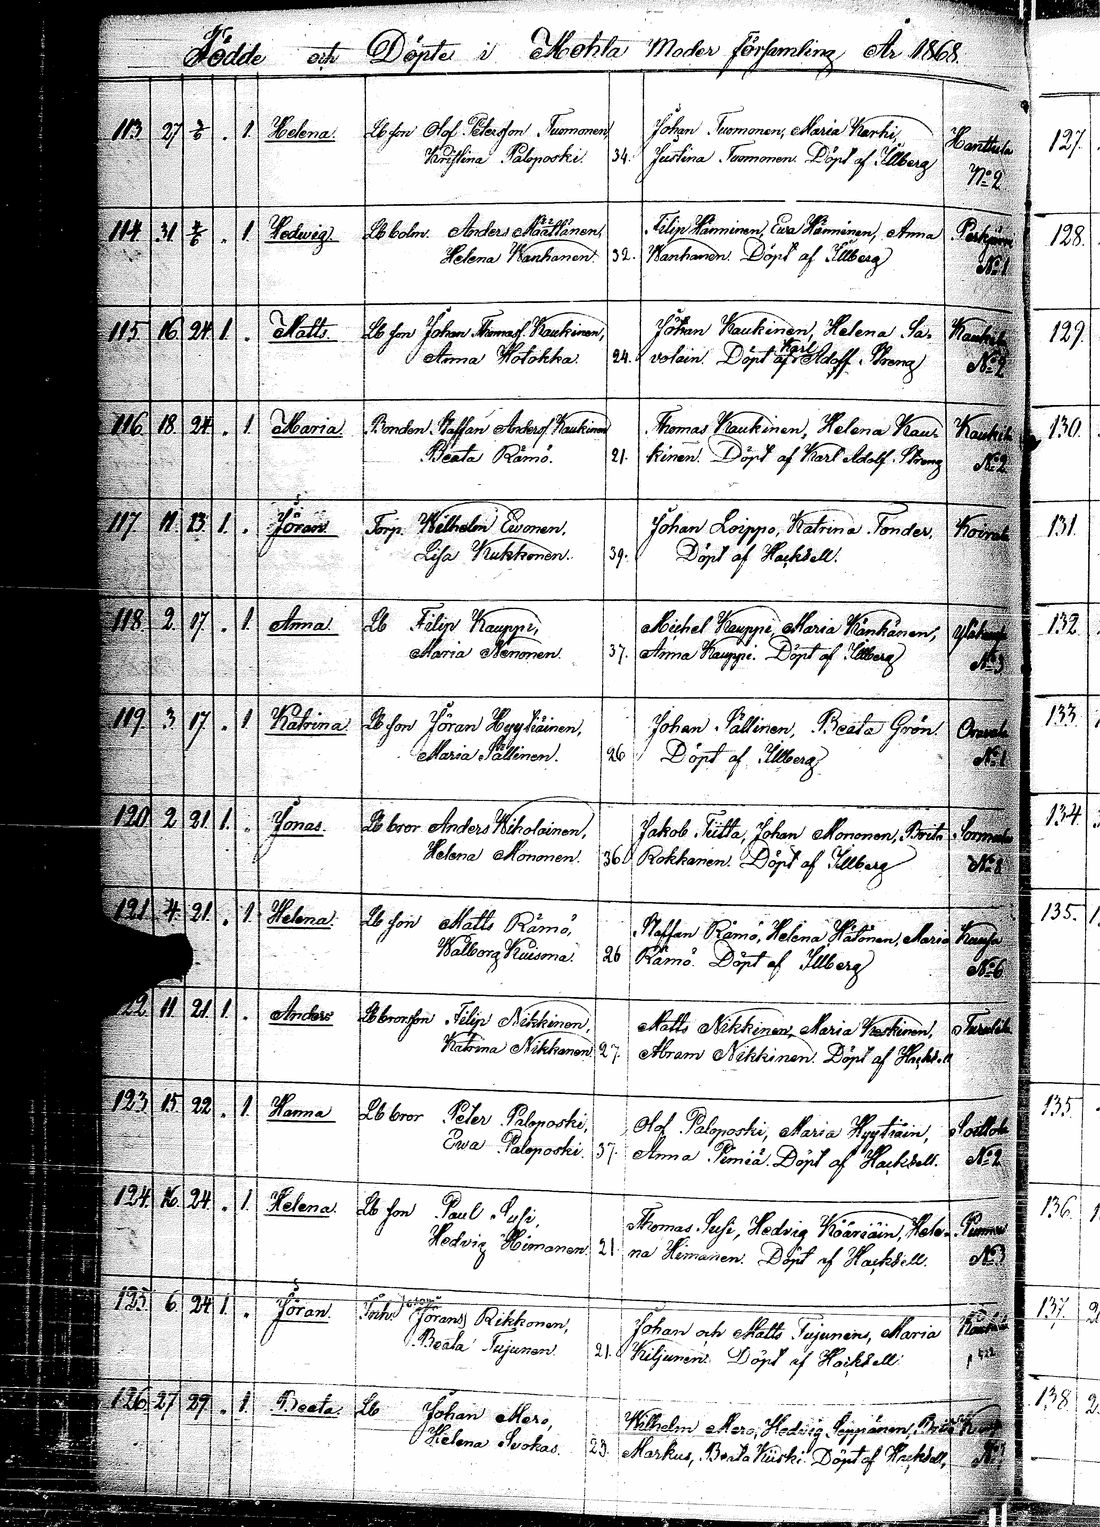 Födde och Döpte i Mohla Moder församling År 1868.
113 27 2/6 . 1. Helena. Lb son Olof Petersson Tuomonen, Johan Tuomonen, Maria Karhi,
Kristina Paloposki 34. Justina Tuomonen. Döpt af Illberg Hanttula
No 2
114 31 2/6 . 1. Hedwig. Lb Anders Määttänen, Filip Hänninen, Ewa Hänninen, Anna Perkjärvi
Helena Wanhanen. 32. Wanhanen. Döpt af Illberg No 1
115 16 24 1. . Matts. Lb son Johan Thomass. Kaukinen, Johan Kaukinen, Helena Sa-
Anna Hotokka. 24. volain. Döpt af Karl Adolf Streng No 2
116 18. 24 . 1. Maria. Bonden Staffan Anderss. Kaukinen Thomas Kaukinen, Helena Kau-
Beata Rämö. 21. kinen. Döpt af Karl Adolf Streng No 2
117 11 23 1. . Jöran Torp. Wilhelm Ewonen, Johan Loippo, Katrina Tonder,
Lisa Kukkonen. 39. Döpt af Hackzell.
118 2. 17 . 1. Anna Lb Filip Kauppi, Michel Kauppi, Maria Känkänen,
Maria Nenonen. 37. Anna Kauppi. Döpt af Illberg No 3
119 3. 17. . 1 Katrina Lb son Jöran Hyytiäinen, Johan Pällinen, Beata Grön. Oravala
Maria Pällinen. 26 Döpt af Illberg No 1
120 2 21 1. . Jonas. Lb bror Anders Wiholainen, Jakob Tiitta, Johan Mononen, Brita
Helena Mononen. 36 Rokkanen. Döpt af Illberg No 8
121 4. 21. . 1. Helena. Lb son Matts Rämö, Staffan Rämö, Helena Hätönen, Maria
Walborg Kuisma. 26 Rämö. Döpt af Illberg No 6
22 11 21. 1. . Anders Lb brorson Filip Nikkinen, Matts Nikkinen, Maria Koskinen,
Katrina Nikkanen 27. Abram Nikkinen. Döpt af Hackzell
123 15. 22 . 1. Hanna Lb bror Peter Paloposki, Olof Paloposki, Maria Hyytiäin,
Ewa Paloposki. 37. Anna Pimiä. Döpt af Hackzell. No 2
124. 16. 24. . 1. Helena. Lb son Paul Susi, Thomas Susi, Hedvig Kääriäin, Hele-
Hedvig Himanen. 21. na Himanen. Döpt af Hackzell. No 3
125. 6. 24 1. . Jöran. Inh. Jörans Rikkonen, Johan och Matts Tujunen, Maria
Beata Tujunen. 21. Kiljunen. Döpt af Hackzell.
126. 27 29. . 1. Beata. Lb Johan Mero, Wilhelm Mero, Hedvig Seppänen,
Helena Svokas. 23. Markus, Beata Kiiski. Döpt af Hackzell,
127.
128.
129.
130.
131.
132.
133.
134.
135.
135.
136.
137.
138